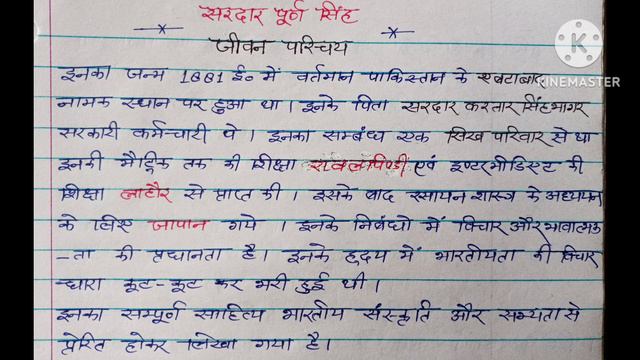 सरदार पूर्ण सिंह
जीवन परिचय
इनका जन्म 1881 ई० में वर्तमान पाकिस्तान के एबटाबाद
नामक स्थान पर हुआ था। इनके पिता सरदार करतार सिंह भागर
सरकारी कर्मचारी थे। इनका सम्बंध एक सिख परिवार से था
इनकी मैट्रिक तक की शिक्षा रावलपिण्डी एवं इण्टरमीडिएट की
शिक्षा लाहौर से प्राप्त की। इसके बाद रसायन शास्त्र के अध्ययन
के लिए जापान गये। इनके निबंधों में विचार और भावात्मक
-ता की प्रधानता है। इनके हृदय में भारतीयता की विचार
धारा कूट-कूट कर भरी हुई थी।
इनका सम्पूर्ण साहित्य भारतीय संस्कृति और सभ्यता से
प्रेरित होकर लिखा गया है।
KINEMASTER